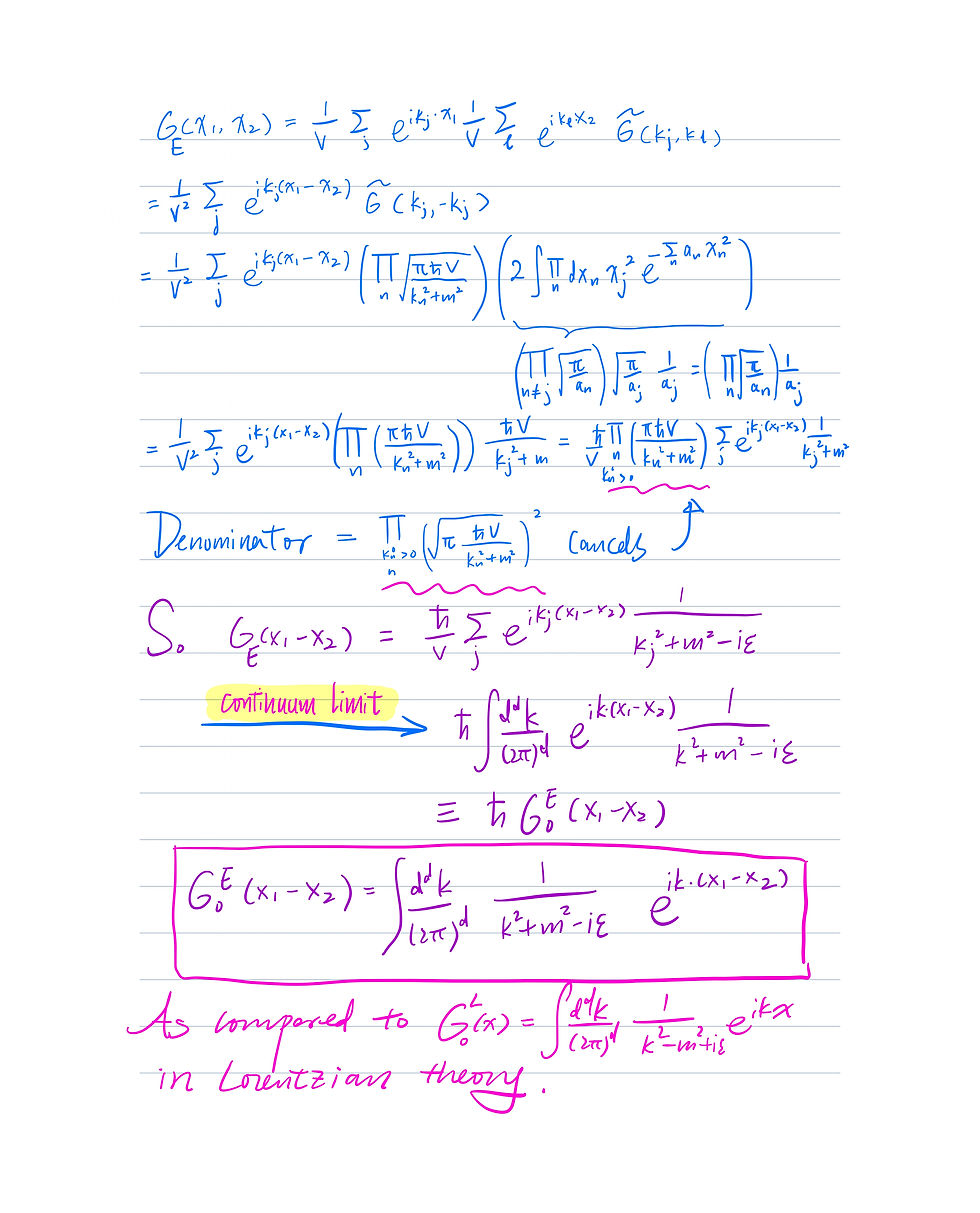 G_E(x₁, x₂) = 1/V Σ_j e^{ik_j·x₁} 1/V Σ_l e^{ik_l x₂} G̃(k_j, k_l)
= 1/V² Σ_j e^{ik_j(x₁-x₂)} G̃(k_j, -k_j)
= 1/V² Σ_j e^{ik_j(x₁-x₂)} (∏_n √(πħV/(k_n²+m²))) (2∫∏_n dx_n x_j² e^{-Σ_n a_n x_n²})
(∏_{n≠j} √(π/a_n)) √(π/a_j) 1/a_j = (∏_n √(π/a_n)) 1/a_j
= 1/V² Σ_j e^{ik_j(x₁-x₂)} (∏_n (πħV/(k_n²+m²))) ħV/(k_j²+m) = ħ/V ∏_{n, k_n⁰>0} (πħV/(k_n²+m²)) Σ_j e^{ik_j(x₁-x₂)} 1/(k_j²+m²)
Denominator = ∏_{k_n⁰>0, n} (√(π ħV/(k_n²+m²)))² cancels
So G_E(x₁-x₂) = ħ/V Σ_j e^{ik_j(x₁-x₂)} 1/(k_j²+m²-iε)
continuum limit → ħ∫ d^dk/(2π)^d e^{ik·(x₁-x₂)} 1/(k²+m²-iε)
≡ ħ G₀^E(x₁-x₂)
G₀^E(x₁-x₂) = ∫ d^dk/(2π)^d 1/(k²+m²-iε) e^{ik·(x₁-x₂)}
As compared to G₀^L(x) = ∫ d^dk/(2π)^d 1/(k²-m²+iε) e^{ikx}
in Lorentzian theory.